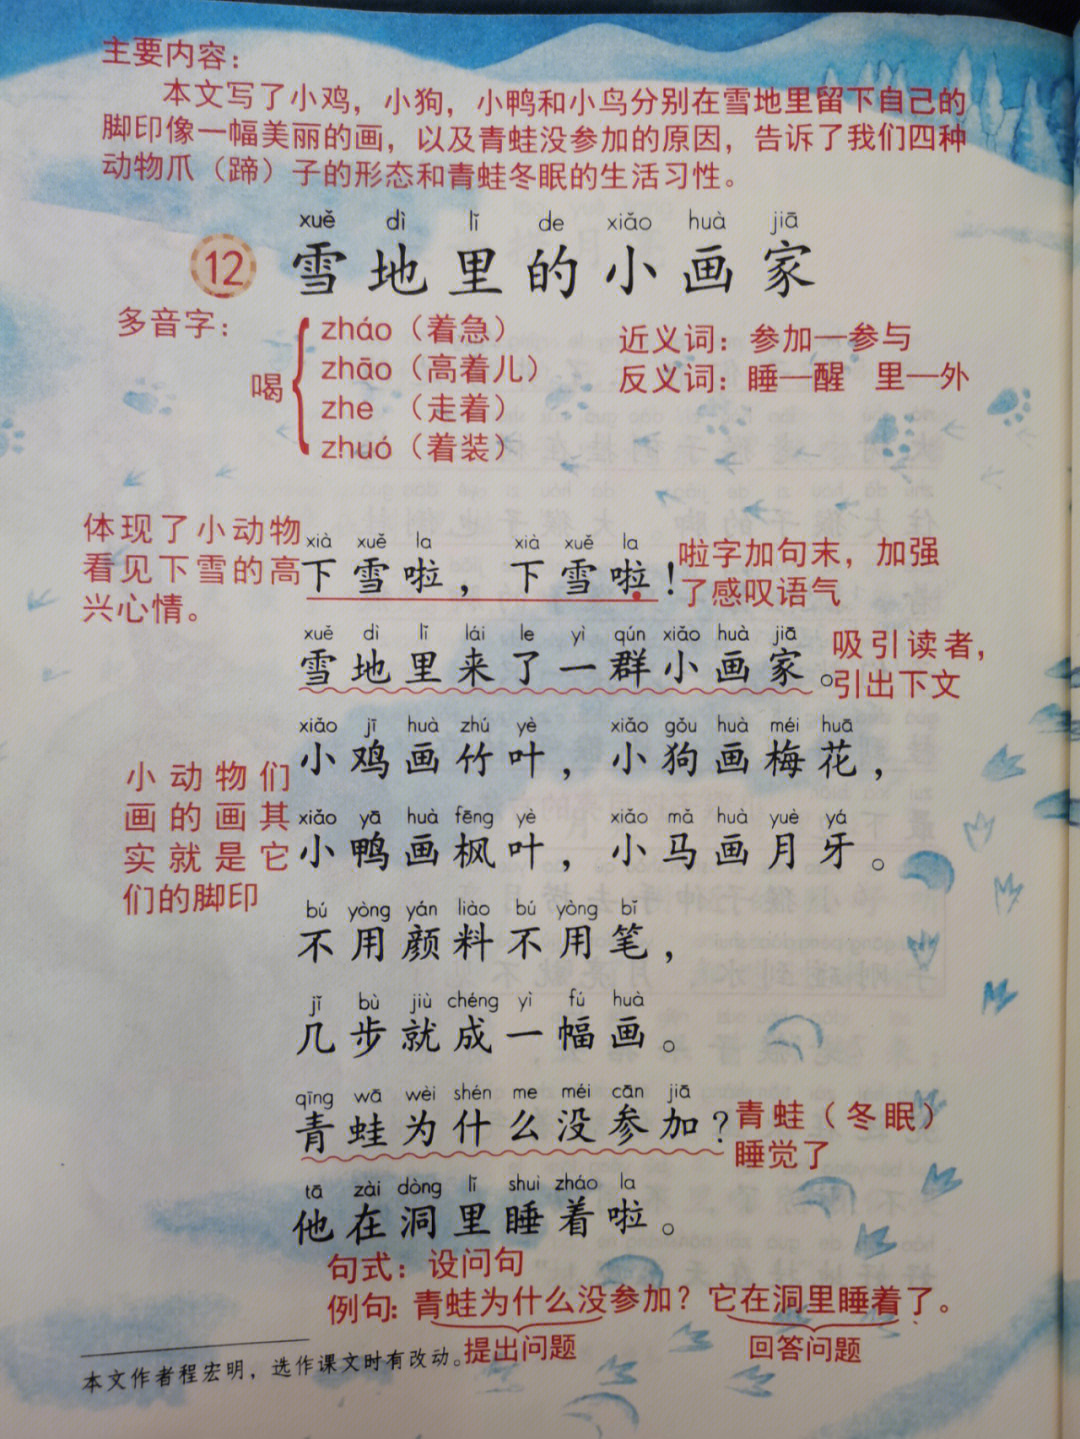 主要内容：
本文写了小鸡，小狗，小鸭和小鸟分别在雪地里留下自己的
脚印像一幅美丽的画，以及青蛙没参加的原因，告诉了我们四种
动物爪（蹄）子的形态和青蛙冬眠的生活习性。
xuě dì lǐ de xiǎo huà jiā
12 雪地里的小画家
多音字：
喝
zháo（着急）
zhāo（高着儿）
zhe （走着）
zhuó（着装）
近义词：参加—参与
反义词：睡—醒 里—外
体现了小动物
看见下雪的高
兴心情。
xià xuě la xià xuě la
下雪啦，下雪啦！
啦字加句末，加强
了感叹语气
xuě dì lǐ lái le yì qún xiǎo huà jiā
雪地里来了一群小画家。
吸引读者，
引出下文
xiǎo jī huà zhú yè xiǎo gǒu huà méi huā
小鸡画竹叶，小狗画梅花，
小动物们
画的画其
实就是它
们的脚印
xiǎo yā huà fēng yè xiǎo mǎ huà yuè yá
小鸭画枫叶，小马画月牙。
bú yòng yán liào bú yòng bǐ
不用颜料不用笔，
jǐ bù jiù chéng yì fú huà
几步就成一幅画。
qīng wā wèi shén me méi cān jiā
青蛙为什么没参加？
青蛙（冬眠）
睡觉了
tā zài dòng lǐ shuì zháo la
他在洞里睡着啦。
句式：设问句
例句：青蛙为什么没参加？它在洞里睡着了。
提出问题 回答问题
本文作者程宏明，选作课文时有改动。